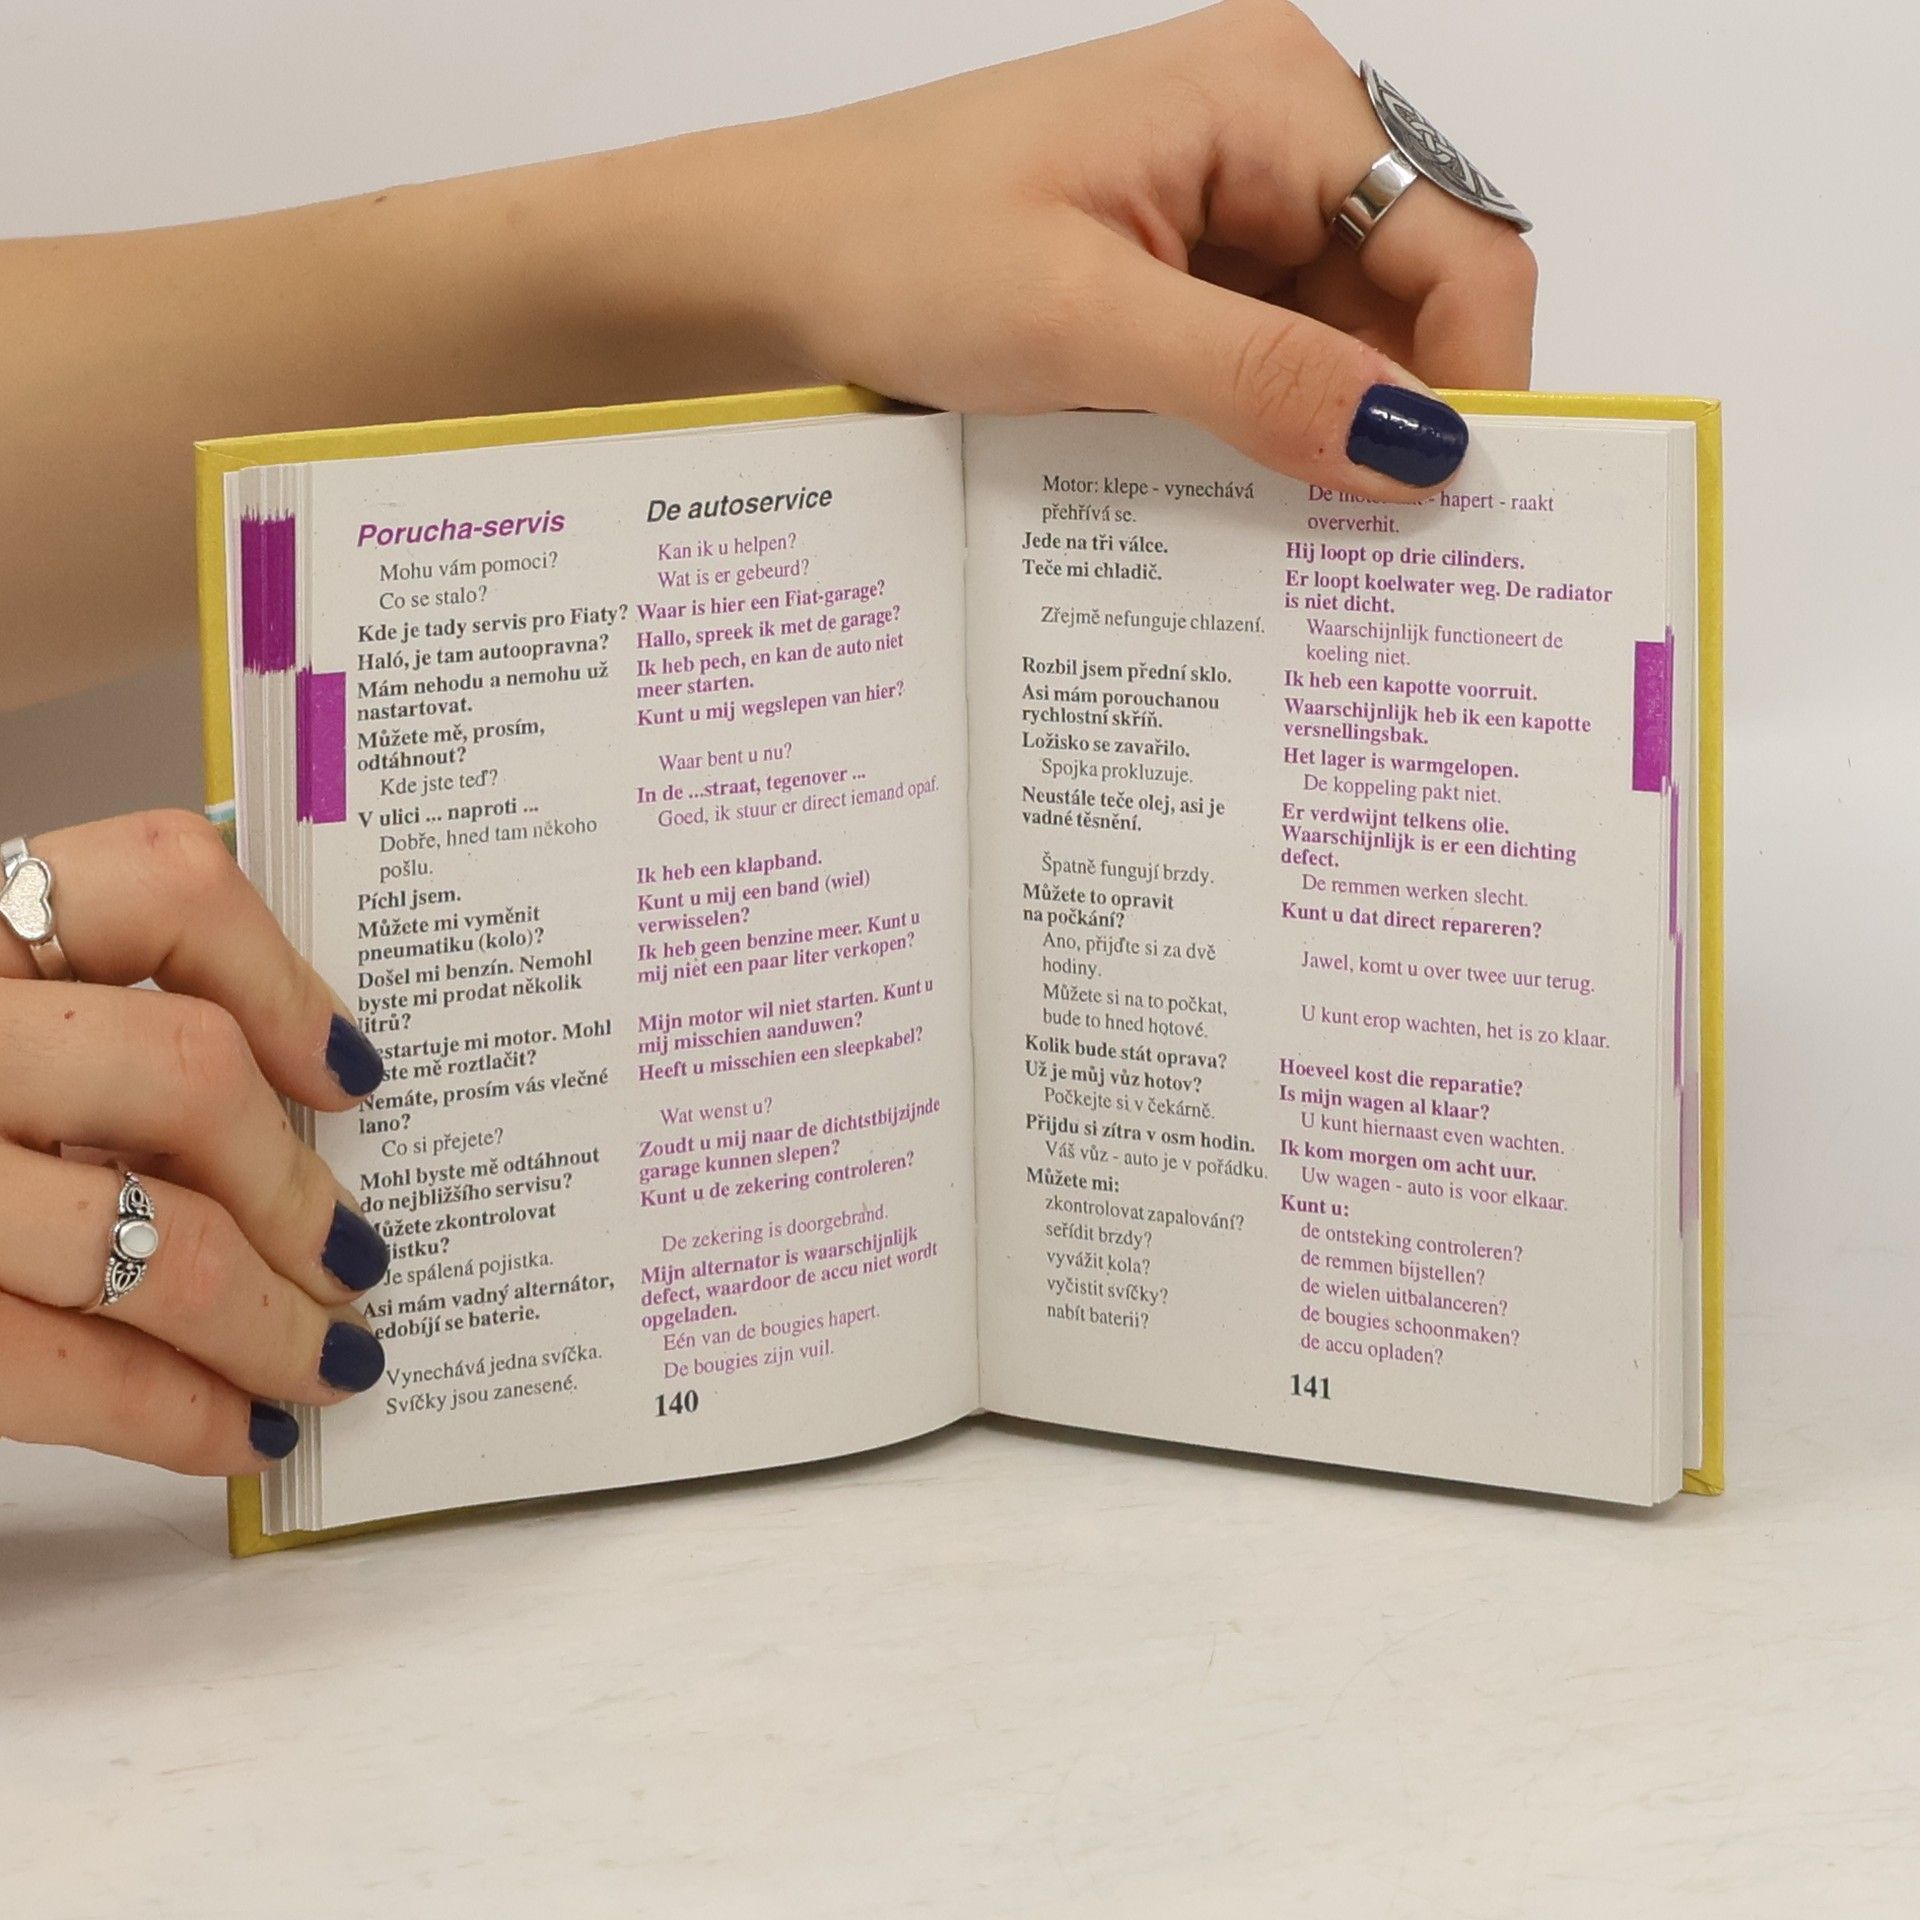 Porucha-servis
Mohu vám pomoci?
Co se stalo?
Kde je tady servis pro Fiaty?
Haló, je tam autoopravna?
Mám nehodu a nemohu už
nastartovat.
Můžete mě, prosím,
odtáhnout?
Kde jste teď?
V ulici ... naproti ...
Dobře, hned tam někoho
pošlu.
Píchl jsem.
Můžete mi vyměnit
pneumatiku (kolo)?
Došel mi benzín. Nemohl
byste mi prodat několik
litrů?
mi motor. Mohl
mě roztlačit?
Nemáte, prosím vás vlečné
lano?
Co si přejete?
Mohl byste mě odtáhnout
do nejbližšího servisu?
Můžete zkontrolovat
Je spálená pojistka.
Asi mám vadný alternátor,
se baterie.
Vynechává jedna svíčka.
Svíčky jsou zanesené.
De autoservice
Kan ik u helpen?
Wat is er gebeurd?
Waar is hier een Fiat-garage?
Hallo, spreek ik met de garage?
Ik heb pech, en kan de auto niet
meer starten.
Kunt u mij wegslepen van hier?
Waar bent u nu?
In de ...straat, tegenover ...
Goed, ik stuur er direct iemand opaf.
Ik heb een klapband.
Kunt u mij een band (wiel)
verwisselen?
Ik heb geen benzine meer. Kunt u
mij niet een paar liter verkopen?
Mijn motor wil niet starten. Kunt u
mij misschien aanduwen?
Heeft u misschien een sleepkabel?
Wat wenst u?
Zoudt u mij naar de dichtstbijzijnde
garage kunnen slepen?
Kunt u de zekering controleren?
De zekering is doorgebrand.
Mijn alternator is waarschijnlijk
defect, waardoor de accu niet wordt
opgeladen.
Eén van de bougies hapert.
De bougies zijn vuil.
140
Motor: klepe - vynechává
přehřívá se.
Jede na tři válce.
Teče mi chladič.
Zřejmě nefunguje chlazení.
Rozbil jsem přední sklo.
Asi mám porouchanou
rychlostní skříň.
Ložisko se zavařilo.
Spojka prokluzuje.
Neustále teče olej, asi je
vadné těsnění.
Špatně fungují brzdy.
Můžete to opravit
na počkání?
Ano, přijďte si za dvě
hodiny.
Můžete si na to počkat,
bude to hned hotové.
Kolik bude stát oprava?
Už je můj vůz hotov?
Počkejte si v čekárně.
Přijdu si zítra v osm hodin.
Váš vůz - auto je v pořádku.
Můžete mi:
zkontrolovat zapalování?
seřídit brzdy?
vyvážit kola?
vyčistit svíčky?
nabít baterii?
De - hapert - raakt
oververhit.
Hij loopt op drie cilinders.
Er loopt koelwater weg. De radiator
is niet dicht.
Waarschijnlijk functioneert de
koeling niet.
Ik heb een kapotte voorruit.
Waarschijnlijk heb ik een kapotte
versnellingsbak.
Het lager is warmgelopen.
De koppeling pakt niet.
Er verdwijnt telkens olie.
Waarschijnlijk is er een dichting
defect.
De remmen werken slecht.
Kunt u dat direct repareren?
Jawel, komt u over twee uur terug.
U kunt erop wachten, het is zo klaar.
Hoeveel kost die reparatie?
Is mijn wagen al klaar?
U kunt hiernaast even wachten.
Ik kom morgen om acht uur.
Uw wagen - auto is voor elkaar.
Kunt u:
de ontsteking controleren?
de remmen bijstellen?
de wielen uitbalanceren?
de bougies schoonmaken?
de accu opladen?
141